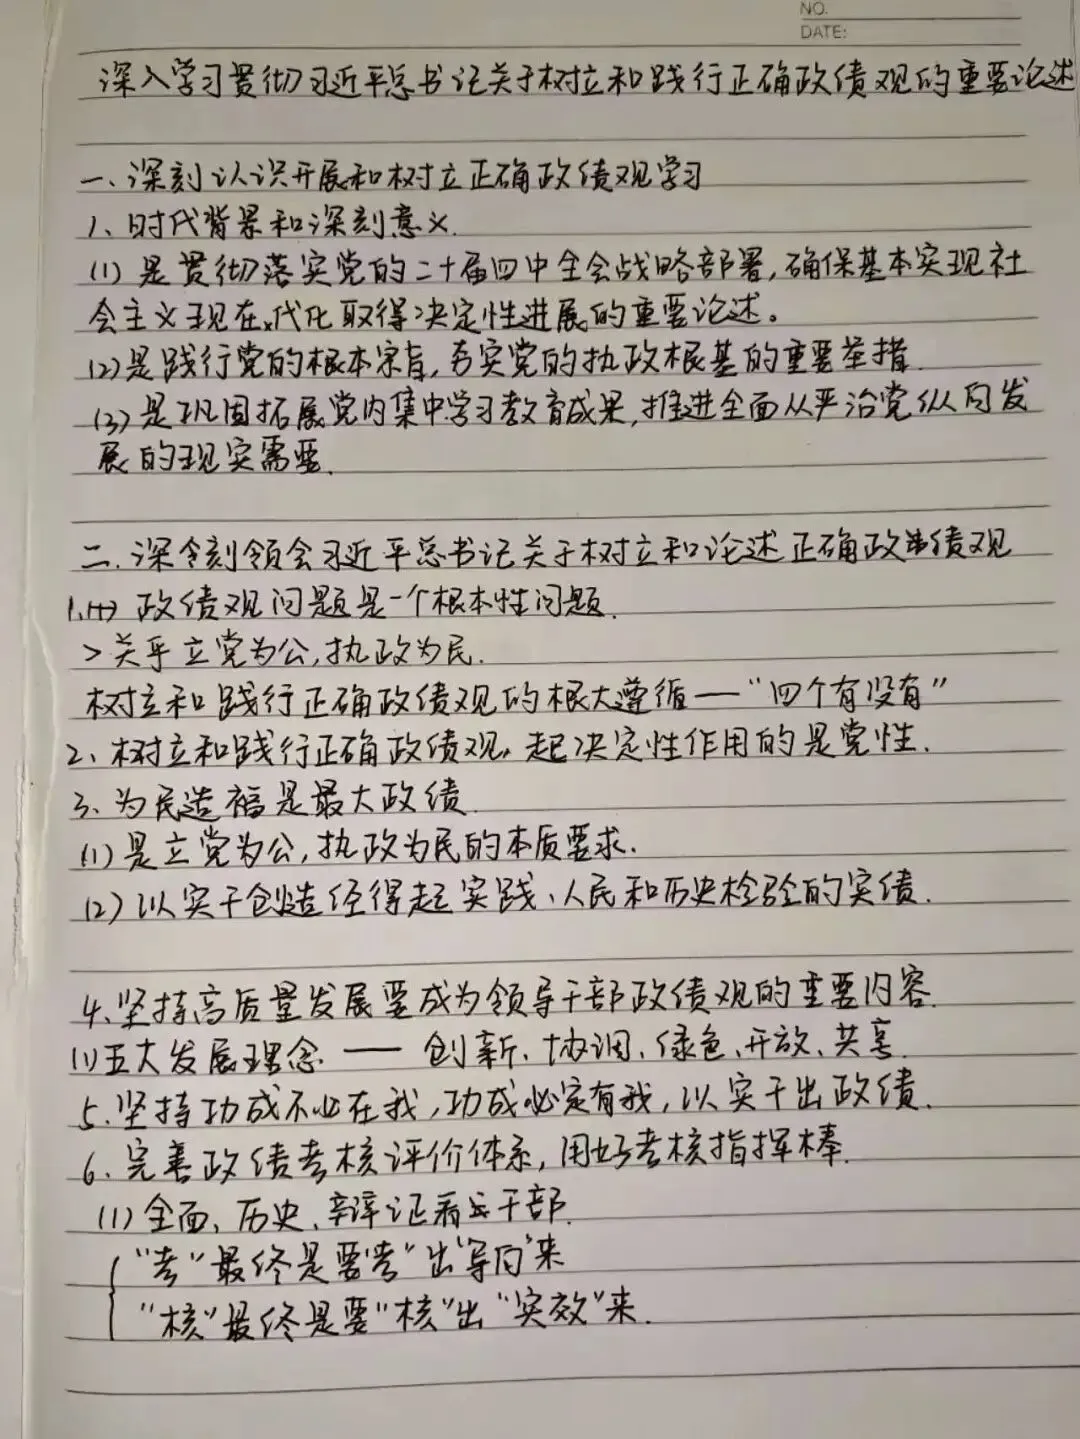 NO.
DATE:
深入学习贯彻习近平总书记关于树立和践行正确政绩观的重要论述
一、深刻认识开展和树立正确政绩观学习
1、时代背景和深刻意义.
(1) 是贯彻落实党的二十届四中全会战略部署,确保基本实现社
会主义现在代化取得决定性进展的重要论述。
(2)是践行党的根本宗旨,夯实党的执政根基的重要举措.
(3)是巩固拓展党内集中学习教育成果,推进全面从严治党纵向发
展的现实需要.
二.深刻领会习近平总书记关于树立和论述正确政绩观
1.(1) 政绩观问题是一个根本性问题.
>关乎立党为公,执政为民.
树立和践行正确政绩观的根大遵循——“四个有没有”
2、树立和践行正确政绩观,起决定性作用的是党性.
3、为民造福是最大政绩.
(1)是立党为公,执政为民的本质要求.
(2)以实干创造经得起实践、人民和历史检验的实绩.
4.坚持高质量发展要成为领导干部政绩观的重要内容.
(1)五大发展理念——创新、协调、绿色、开放、共享.
5.坚持功成不必在我,功成必定有我,以实干出政绩.
6、完善政绩考核评价体系,用好考核指挥棒.
(1)全面、历史、辩证看干部.
“考”最终是要“考”出“导向”来
“核”最终是要“核”出“实效”来.